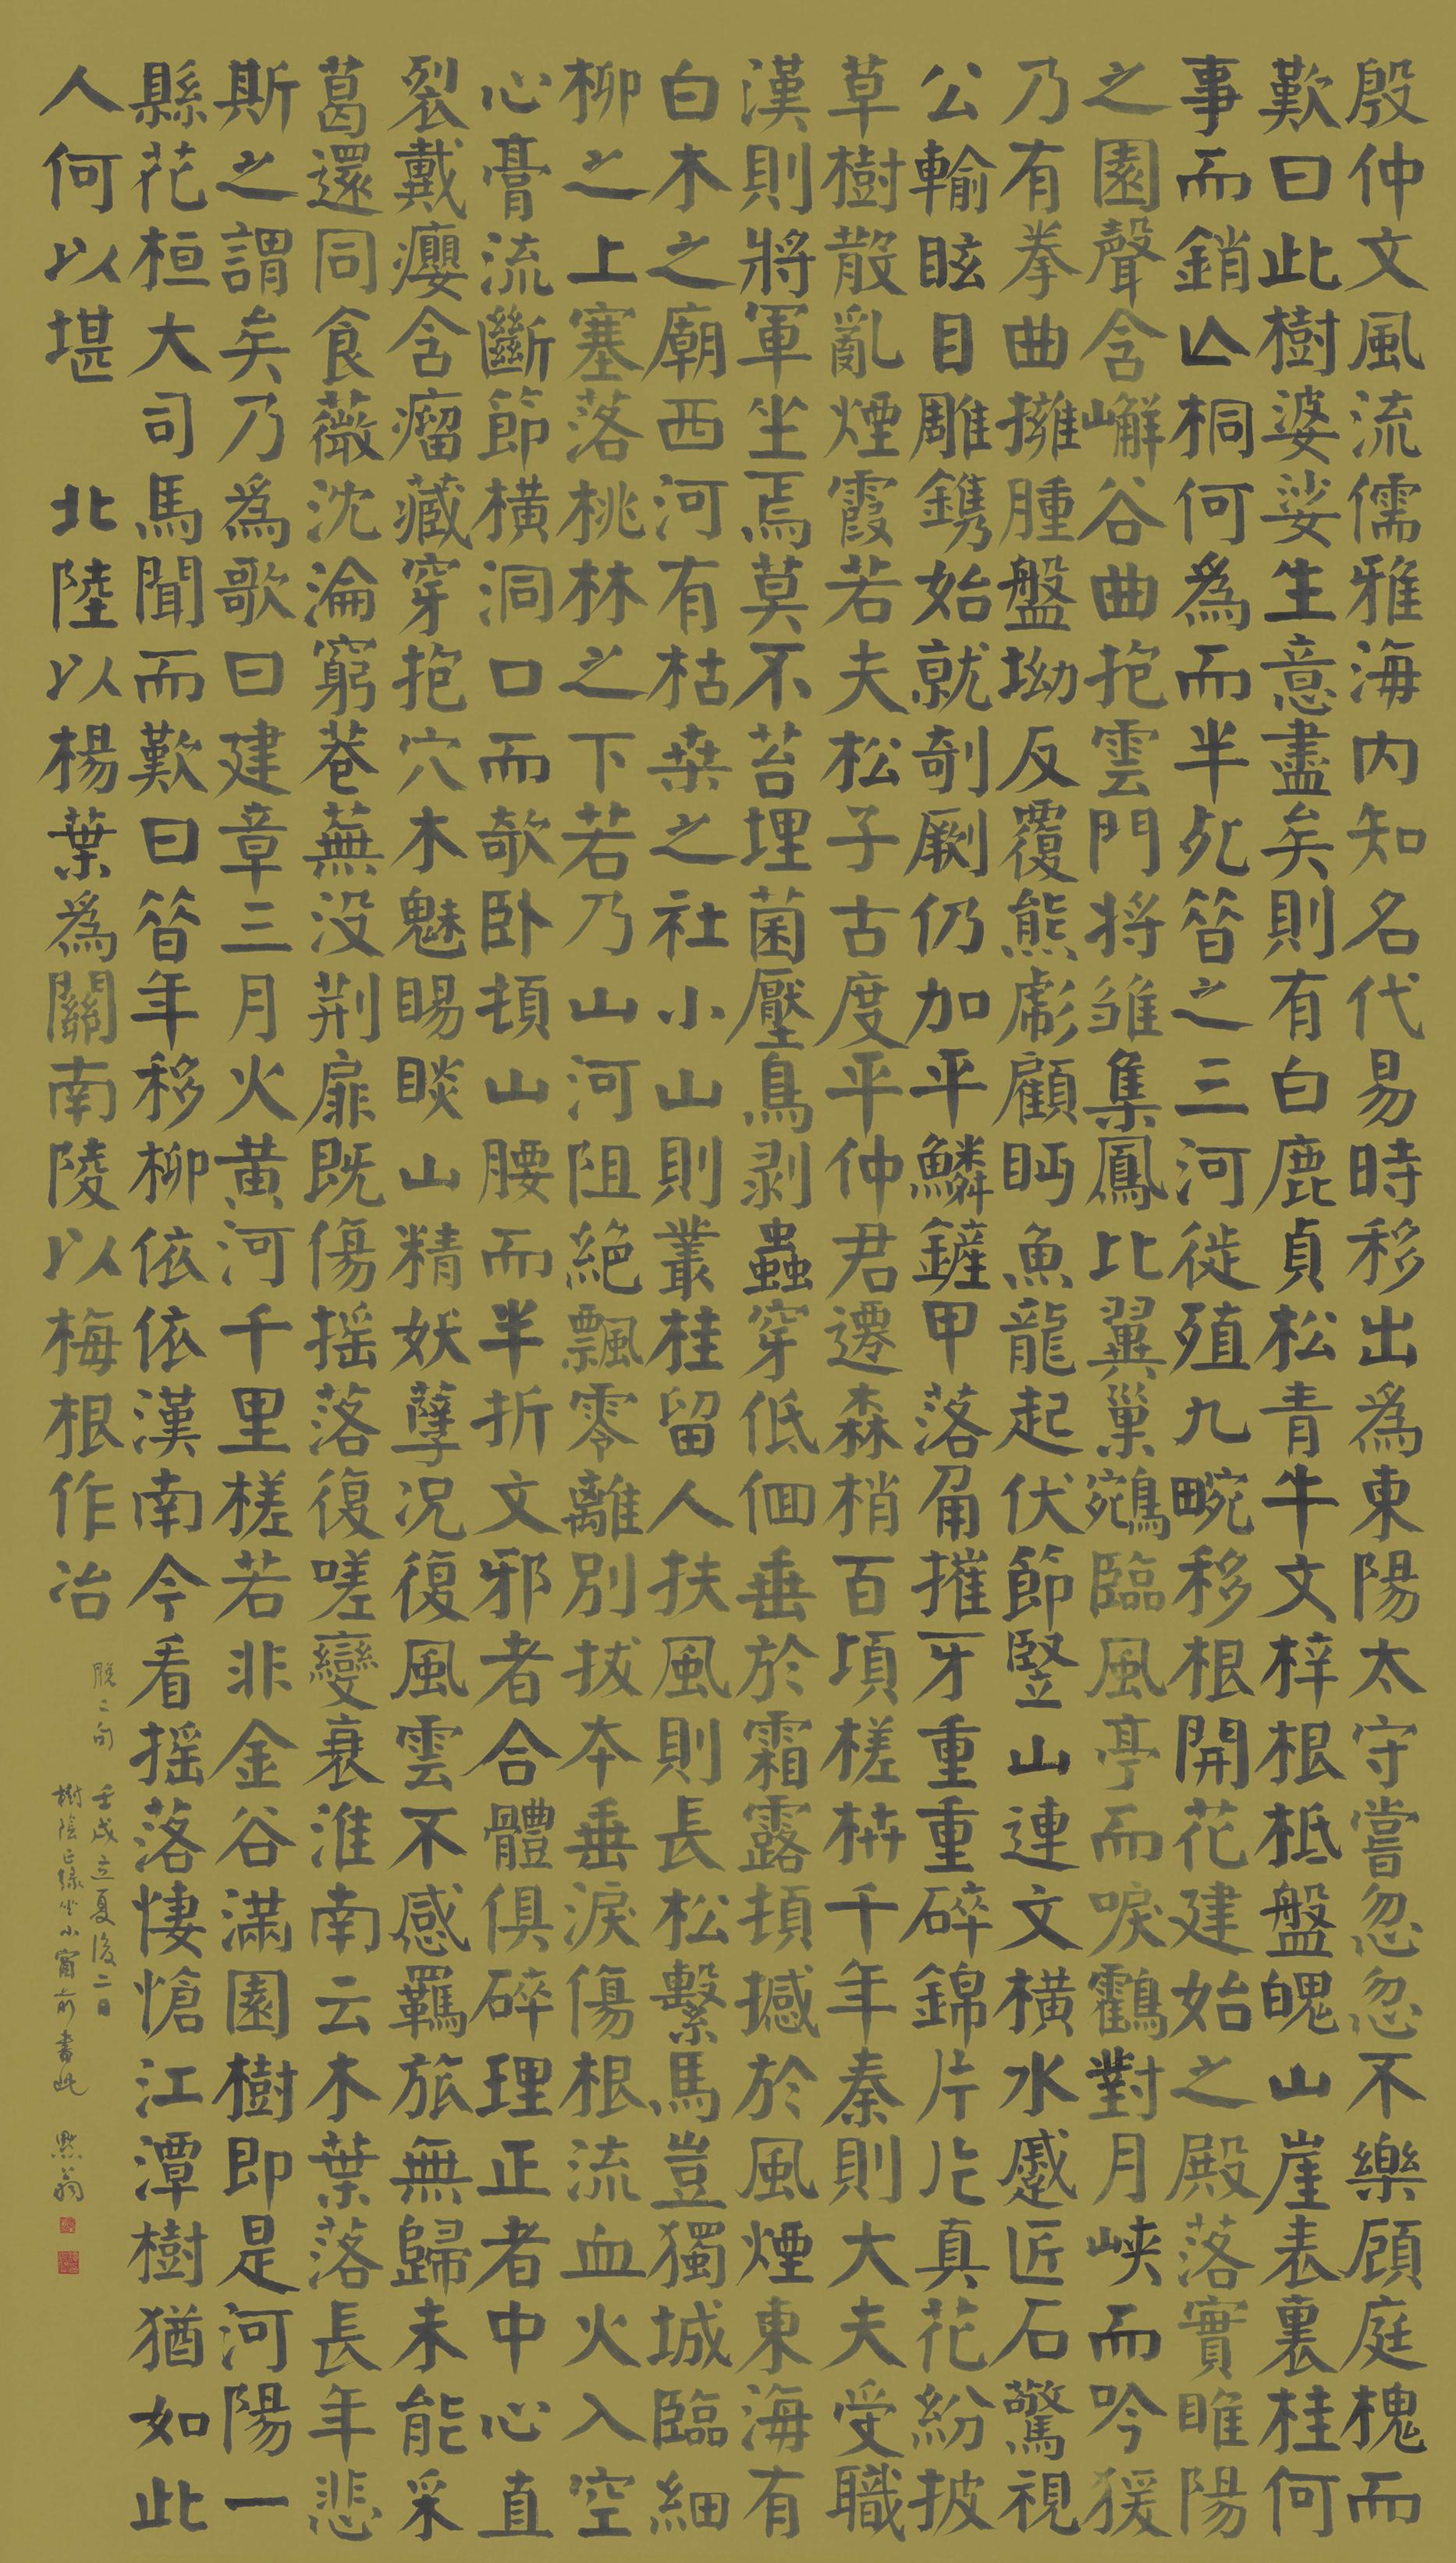 殷仲文風流儒雅海内知名代易時移出為東陽太守嘗忽忽不樂顧庭槐而
歎曰此樹婆娑生意盡矣則有白鹿貞松青牛文梓根柢盤魄山崖表裏桂何
事而銷亾桐何為而半死昝之三河徙殖九畹移根開花建始之殿落實睢陽
之園聲含嶰谷曲抱雲門將雛集鳳比翼巢鵷臨風亭而唳鶴對月峽而吟猨
乃有拳曲擁腫盤坳反覆熊彪顧眄魚龍起伏節豎山連文橫水蹙匠石驚視
公輸眩目雕鎸始就剞劂仍加平鱗鏟甲落角摧牙重重碎錦片片真花紛披
草樹散亂煙霞若夫松子古度平仲君遷森梢百頃槎枿千年秦則大夫受職
漢則將軍坐焉莫不苔埋菌壓鳥剥蟲穿低佪垂於霜露頓撼於風煙東海有
白木之廟西河有枯桒之社小山則叢桂留人扶風則長松繫馬豈獨城臨細
柳之上塞落桃林之下若乃山河阻絕飄零離別拔夲垂淚傷根流血火入空
心膏流斷節橫洞口而欹卧頓山腰而半折文邪者合體俱碎理正者中心直
裂戴癭含瘤藏穿抱穴木魅賜睒山精妖孽况復風雲不感羈旅無歸未能采
葛還同食薇沈淪窮巷蕪没荆扉既傷搖落復嗟變衰淮南云木葉落長年悲
斯之謂矣乃為歌曰建章三月火黃河千里槎若非金谷滿園樹即是河陽一
縣花桓大司馬聞而歎曰昝年移柳依依漢南今看搖落悽愴江潭樹猶如此
人何以堪 北陸以楊葉為關南陵以梅根作冶
脫二句 壬戌立夏後二日
樹陰正綠坐小窗前書此 默翁